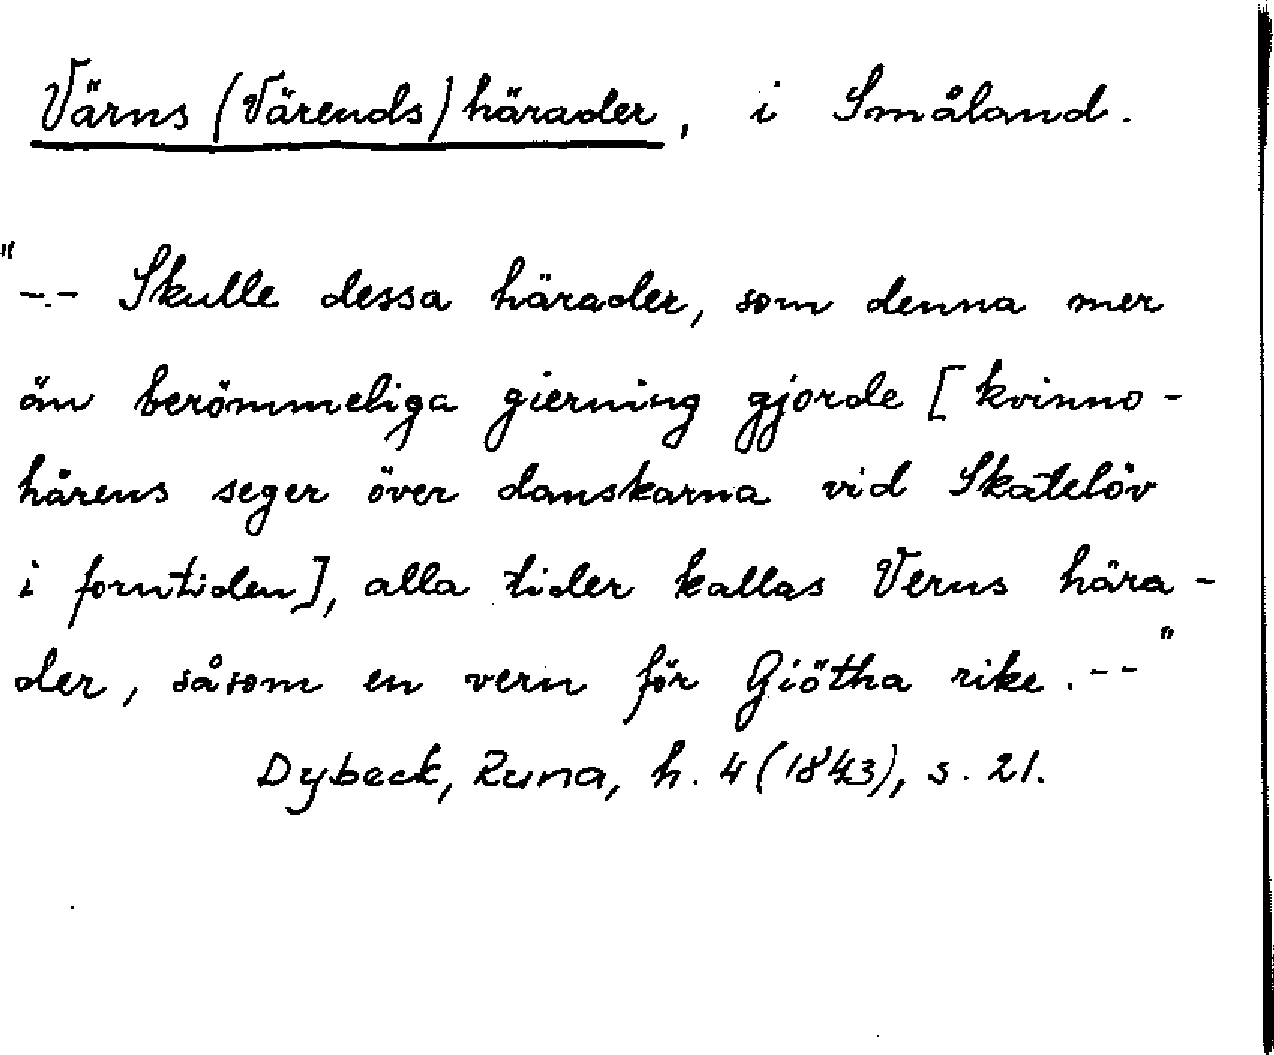 Värns (Värends) härader, i Småland.
"-.- Skulle dessa härader, som denna mer
än berömmeliga gierning gjorde [kvinno-
härens seger över danskarna vid Skatelöv
i forntiden], alla tider kallas Verns hära-
der, såsom en vern för Giötha rike. -- "
Dybeck, Runa, h. 4 (1843), s. 21.